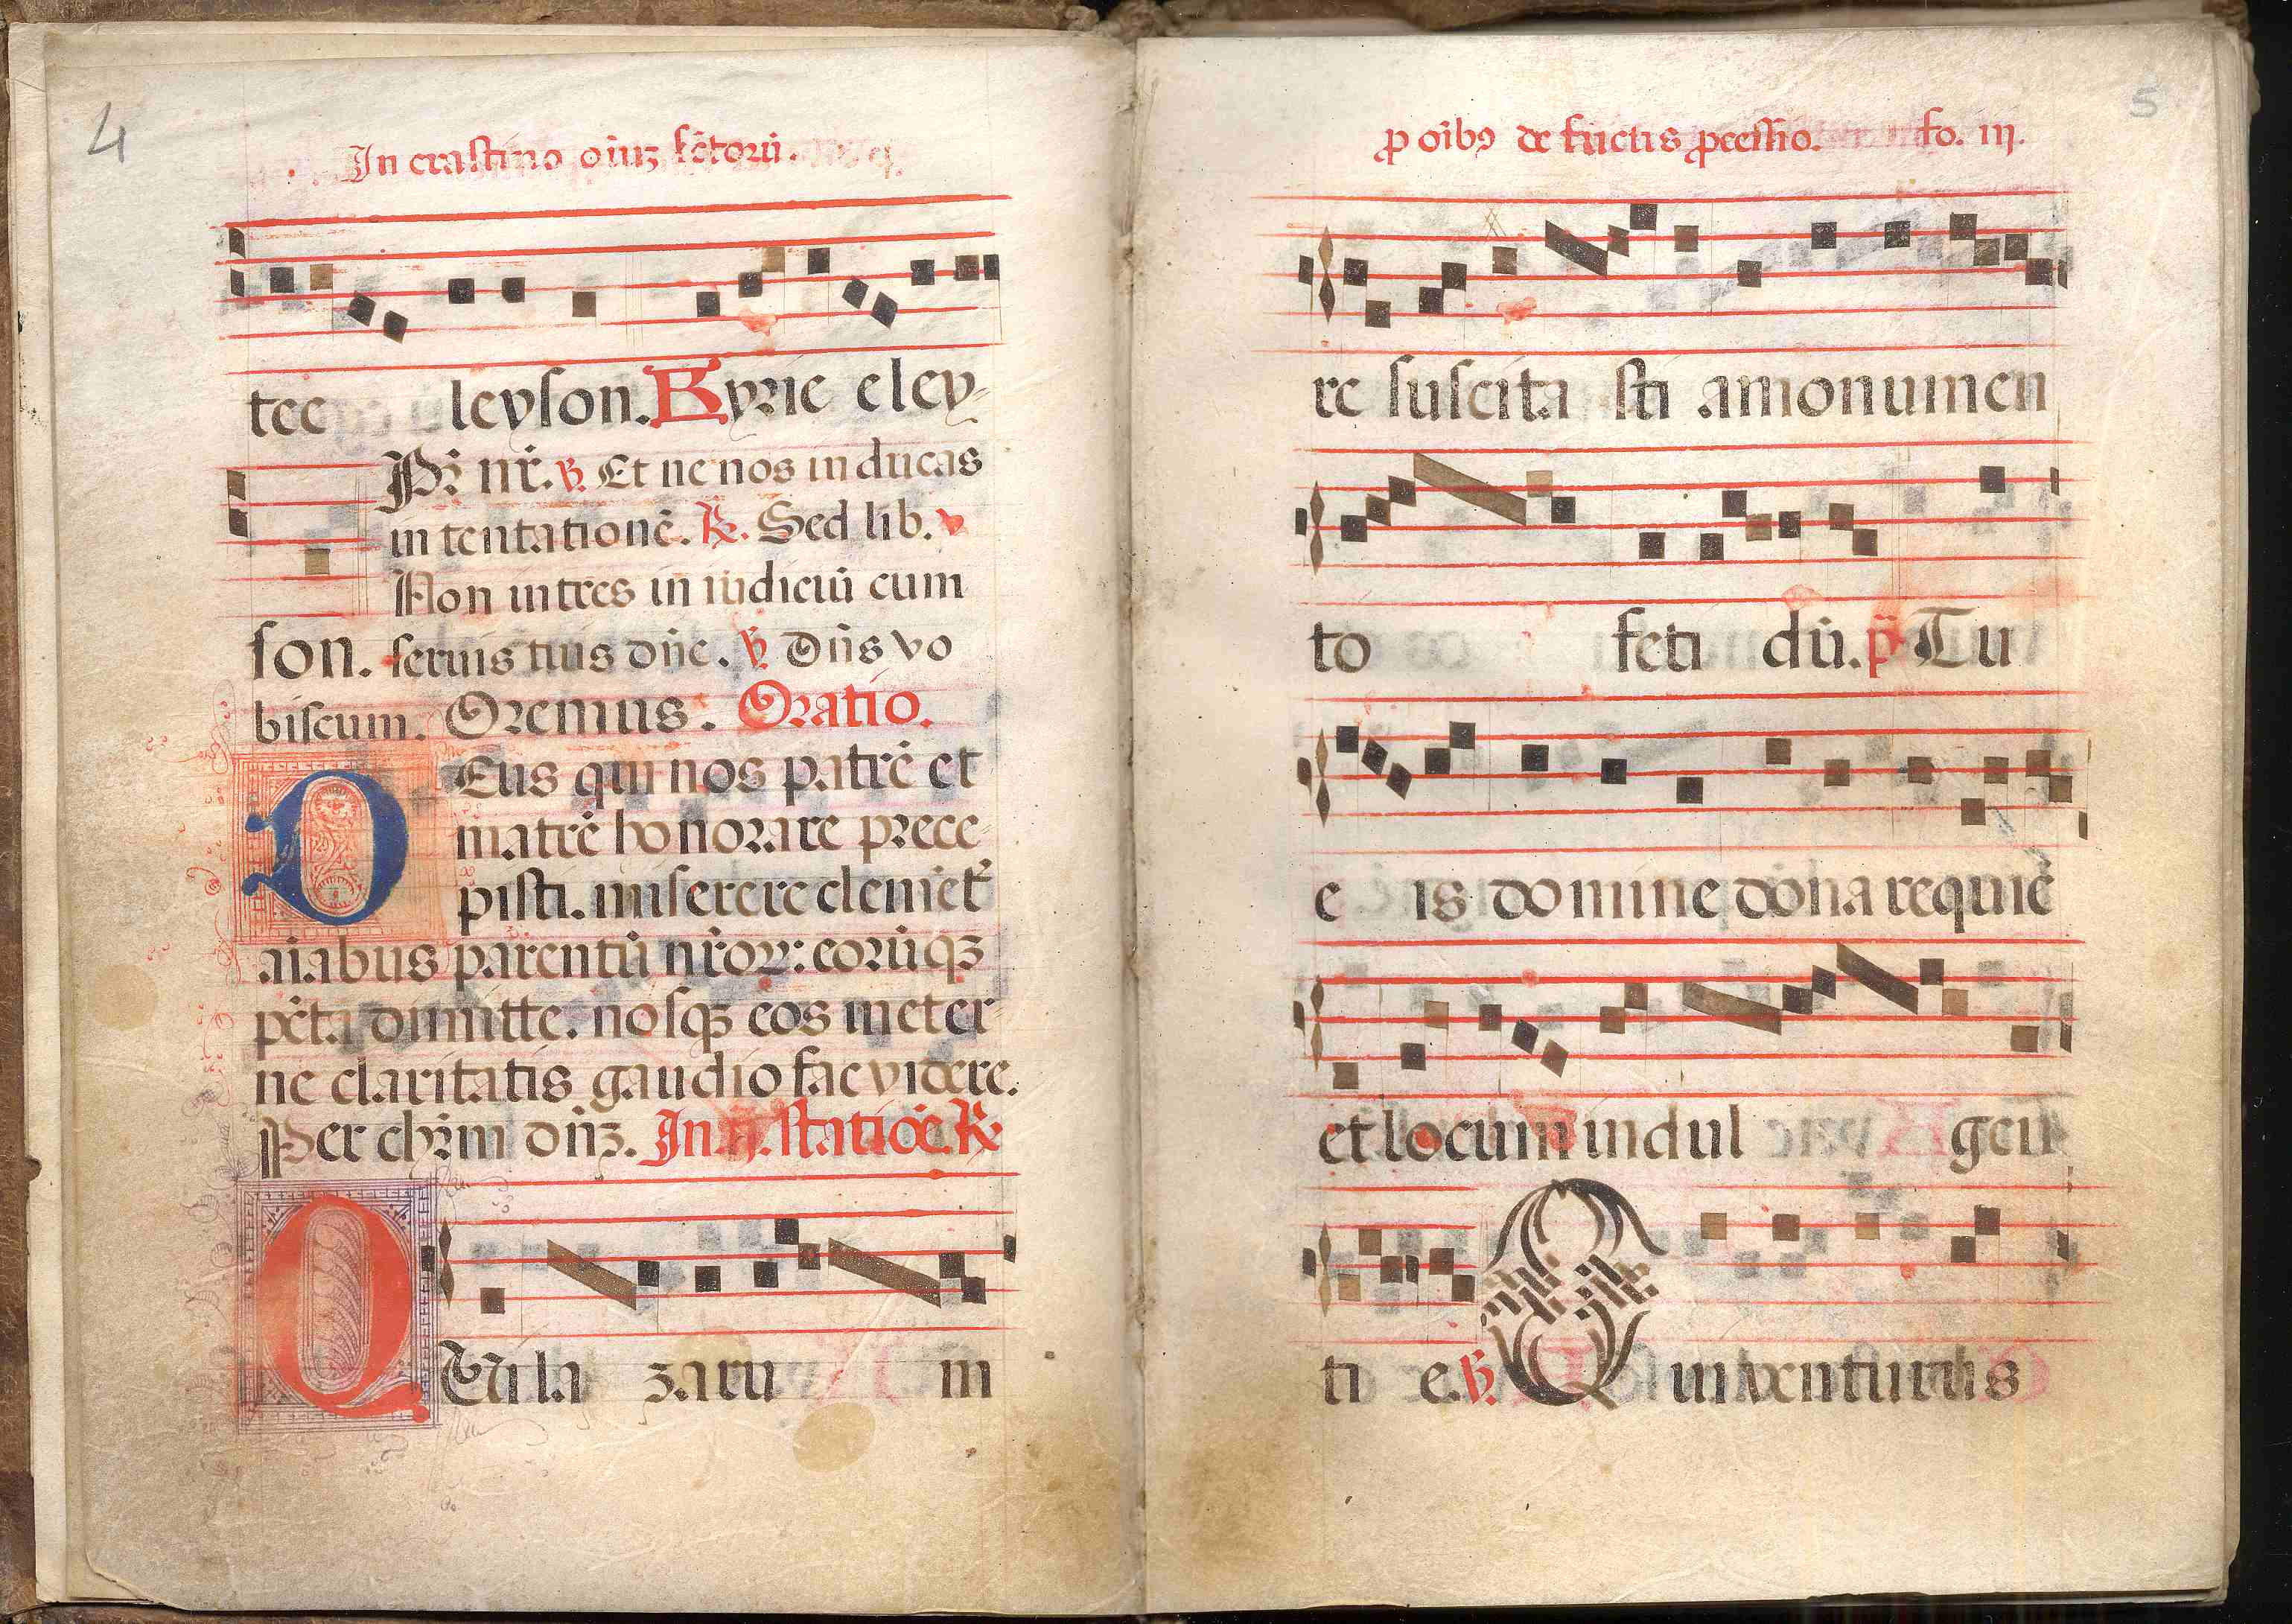 4
In crastino oı̄uꝫ sc̄torū.
tee leyson. Kyrie eley-
Pr̄ nr̄. ℣. Et ne nos inducas
in tentationē. ℟. Sed lib.
Non intres in iudiciū cum
son. seruis tuis dn̄e. ℣. Dn̄s vo
biscum. Oremus. Oratio.
DEus qui nos patrē et
matrē honorare prece-
pisti. miserere clemēt᷑
aı̄abus parentū nr̄oꝝ: eorūqꝫ
pc̄ta dimitte. nosqꝫ eos in eter-
ne claritatis gaudio fac videre.
Per chr̄m dn̄ꝫ. In statiōe ℟
QUi la zaru m
5
ꝓ oı̄bꝰ defūctis ꝓcessio. fo. iii.
re suscita sti a monumen
to feti dū. p̄ Tu
e is domine dona requiē
et locum indul gen
ti e. ℣. Qui venturus